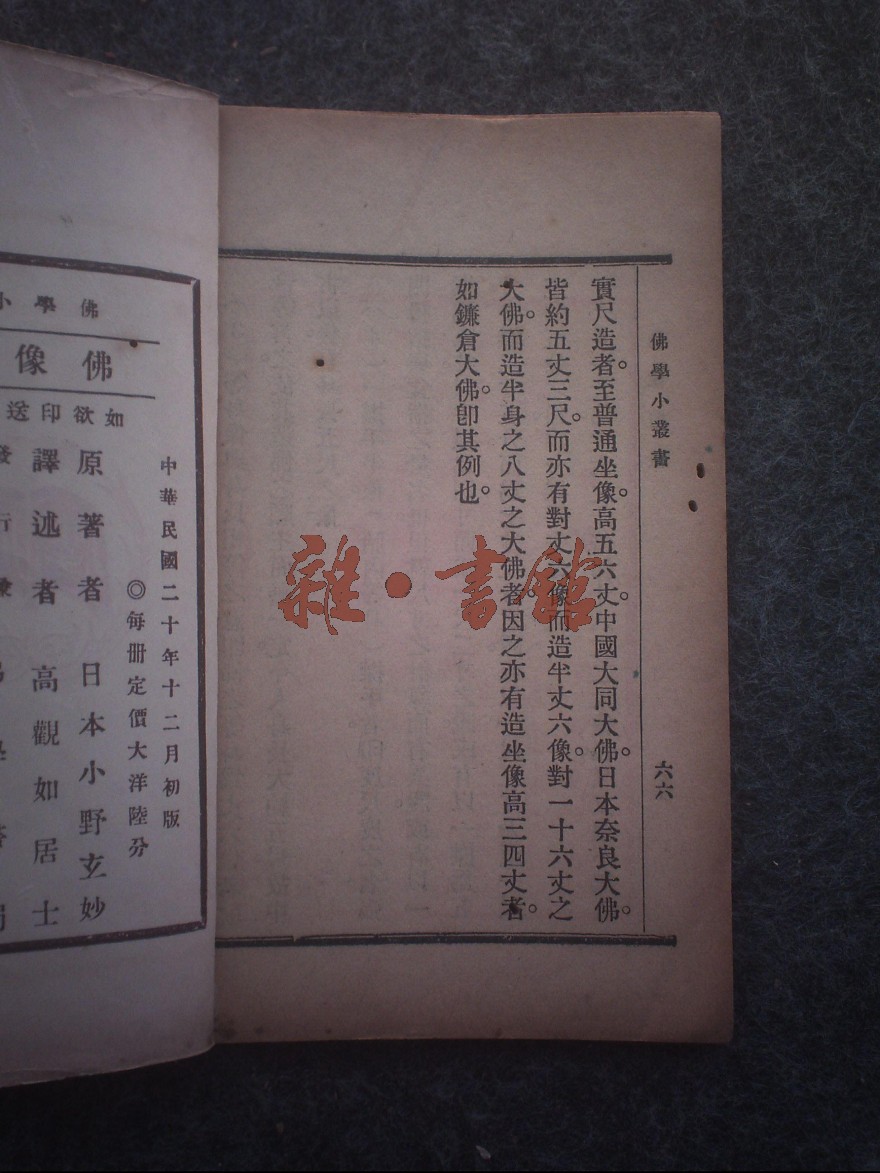 佛學小叢書
六六
實尺造者。至普通坐像。高五六丈。中國大同大佛。日本奈良大佛。
皆約五丈三尺。而亦有對丈六像而造半丈六像。對一十六丈之
大佛。而造半身之八丈之大佛者。因之亦有造坐像高三四丈者。
如鐮倉大佛。卽其例也。
雜·書館
中華民國二十年十二月初版
◎每册定價大洋陸分
佛學小
佛像
如欲印送
原著者 日本小野玄妙
譯述者 高觀如居士